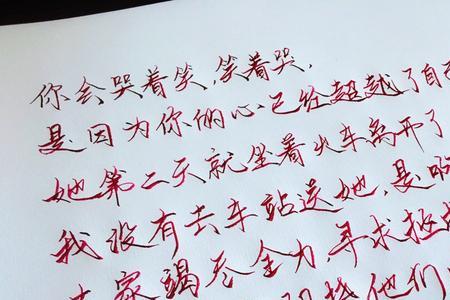 你会哭着笑,笑着哭,
是因为你的心已经超越了自
她第二天就坐着火车离开了
我没有去车站送她,是啊
家竭尽全力寻求
找他们